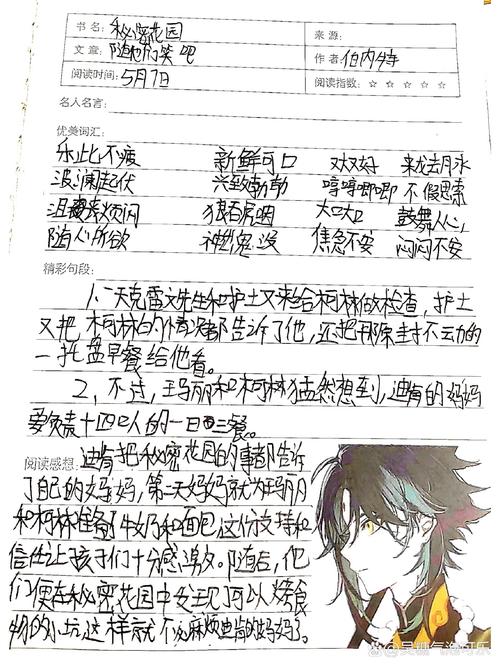 书名：秘密花园
来源：
文章：随他们笑吧
作者：伯内特
阅读时间：5月7日
阅读指数：☆ ☆ ☆ ☆ ☆
名人名言：
优美词汇：
乐此不疲 新鲜可口 对对好 来龙去月永
波澜起伏 兴致勃勃 哼哼唧唧 不假思索
沮丧烦闷 独百昆明 大口大口 鼓舞人心,
随心所欲 神出鬼没 焦急不安 闷闷不安
精彩句段：
1、一天克雷文先生和护士又来给柯林做检查，护士
又把柯林的情况都告诉了他，还把那原封不动的
一托盘早餐给他看。
2、不过，玛丽和柯林猛然想到，迪肯的妈妈
要负责十四口人的一日三餐。
阅读感想：迪肯把秘密花园的事都告诉
了自己的妈妈，第二天妈妈就为玛丽
和柯林准备了牛奶和面包这份支持和
信任让孩子们十分感激。随后，他
们便在秘密花园中发现了可以烤食
物的小坑这样就不必麻烦迪肯的妈妈了。